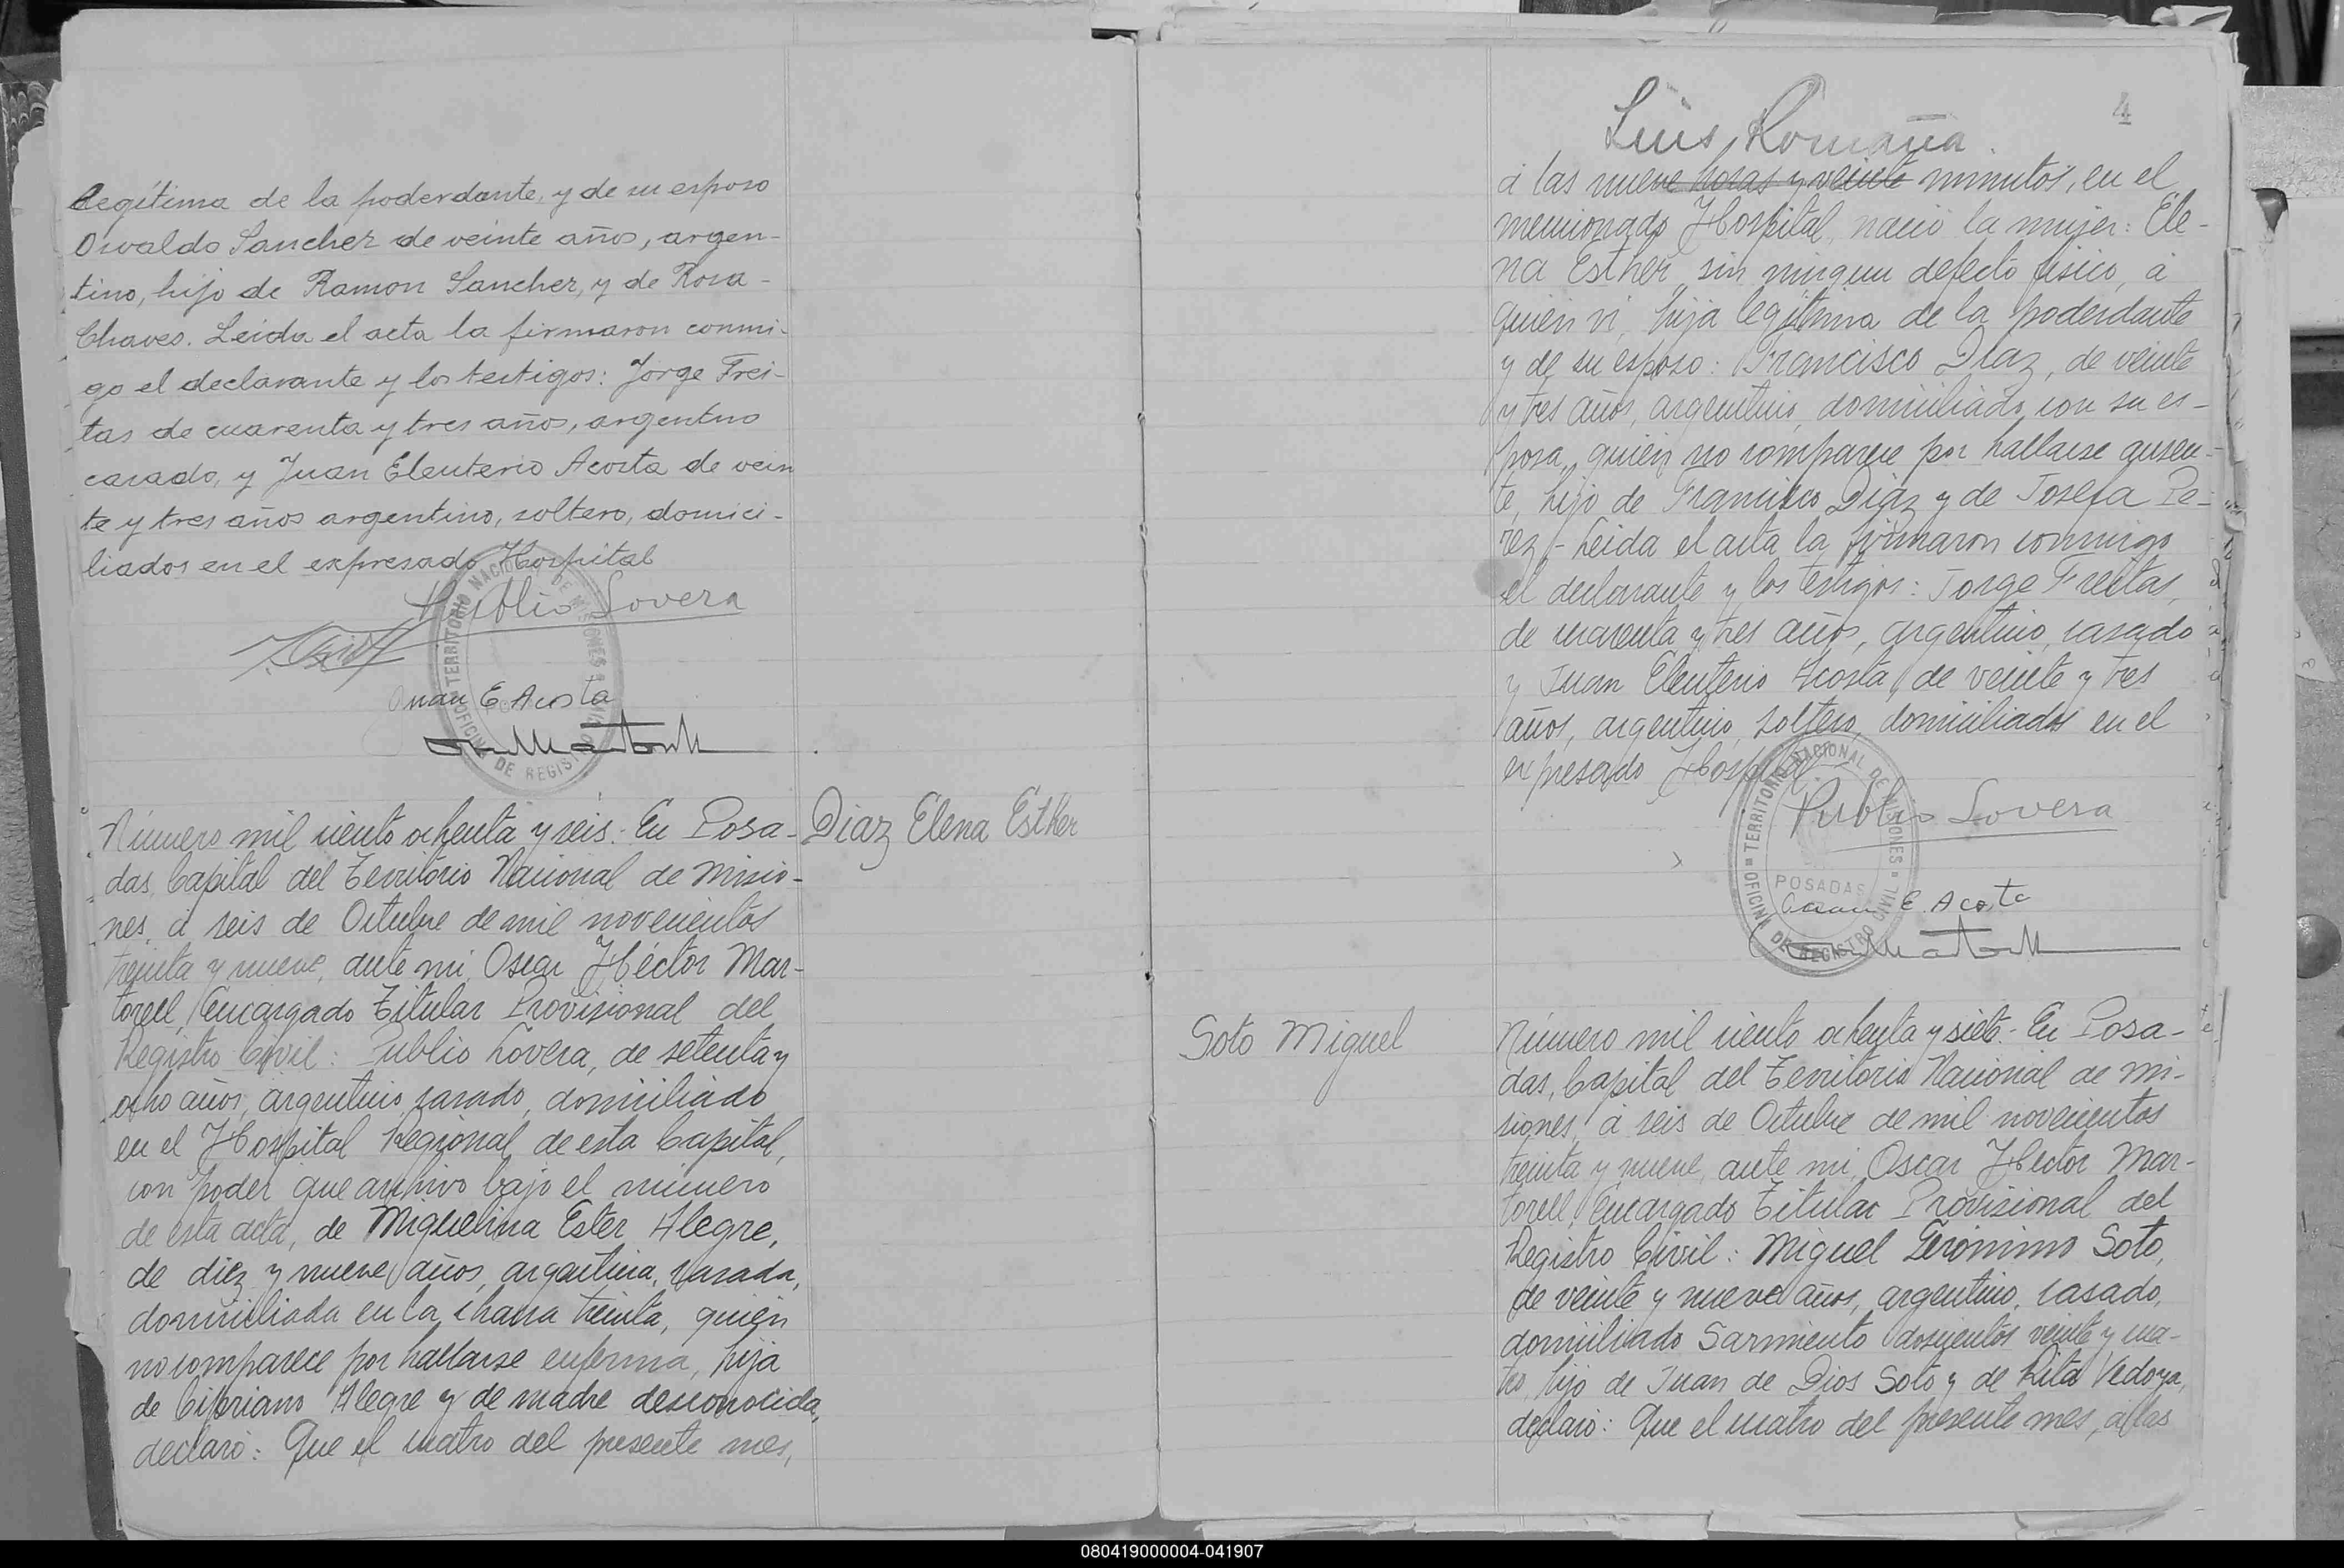 legítima de la poderdante, y de su esposo
Osvaldo Sanchez de veinte años, argen-
tino, hijo de Ramon Sanchez, y de Rosa
Chaves. Leida el acta la firmaron conmi-
go el declarante y los testigos: Jorge Frei-
tas de cuarenta y tres años, argentino
casado, y Juan Eleuterio Acosta de vein
te y tres años argentino, soltero, domici-
liados en el expresado Hospital
Publio Lovera
Juan E Acosta
TERRITORIO NACIONAL DE MISIONES
OFICINA DE REGISTRO CIVIL
Número mil ciento ochenta y seis. En Posa-
das, Capital del Territorio Nacional de Misio-
nes, á seis de Octubre de mil novecientos
treinta y nueve, ante mi, Oscar Héctor Mar-
torell, Encargado Titular Provisional del
Registro Civil: Publio Lovera, de setenta y
ocho años, argentino, casado, domiciliado
en el Hospital Regional de esta Capital,
con poder que archivo bajo el número
de esta acta, de Miguelina Ester Alegre,
de diez y nueve años, argentina, casada,
domiciliada en la chacra treinta, quien
no comparece por hallarse enferma, hija
de Cipriano Alegre y de madre desconocida,
declaró: Que el cuatro del presente mes,
Diaz Elena Esther
4
Luis Romaña.
á las nueve horas y veinte minutos, en el
mencionado Hospital, nació la mujer: Ele-
na Esther, sin ningun defecto fisico, á
quien vi, hija legítima de la poderdante
y de su esposo: Francisco Diaz, de veinte
y tres años, argentino, domiciliado con su es-
posa, quien no comparece por hallarse ausen-
te, hijo de Francisco Diaz y de Josefa Pe-
rez - Leida el acta la firmaron conmigo
el declarante y los testigos: Jorge Freitas,
de cuarenta y tres años, argentino, casado
y Juan Eleuterio Acosta, de veinte y tres
años, argentino, soltero, domiciliados en el
expresado Hospital
Publio Lovera
Juan E. Acosta
TERRITORIO NACIONAL DE MISIONES
POSADAS
OFICINA DE REGISTRO CIVIL
Soto Miguel
Número mil ciento ochenta y siete. En Posa-
das, Capital del Territorio Nacional de Mi-
siones, á seis de Octubre de mil novecientos
treinta y nueve, ante mi, Oscar Hector Mar-
torell, Encargado Titular Provisional del
Registro Civil: Miguel Gerónimo Soto,
de veinte y nueve años, argentino, casado,
domiciliado Sarmiento doscientos veinte y cua-
tro, hijo de Juan de Dios Soto y de Rita Vedoya,
declaró: Que el cuatro del presente mes, á las
080419000004-041907